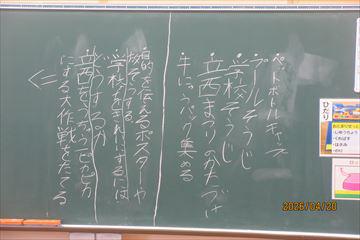 ペットボトルキャップ
プールそうじ
学校そうじ
立西まつりの片づけ
牛にゅうパック集める
目的を伝えるポスターや
放そうする
学校をきれいにするには
どうするか
立西をもっと
にする大作戦をたてる
ひだり
2026/04/20